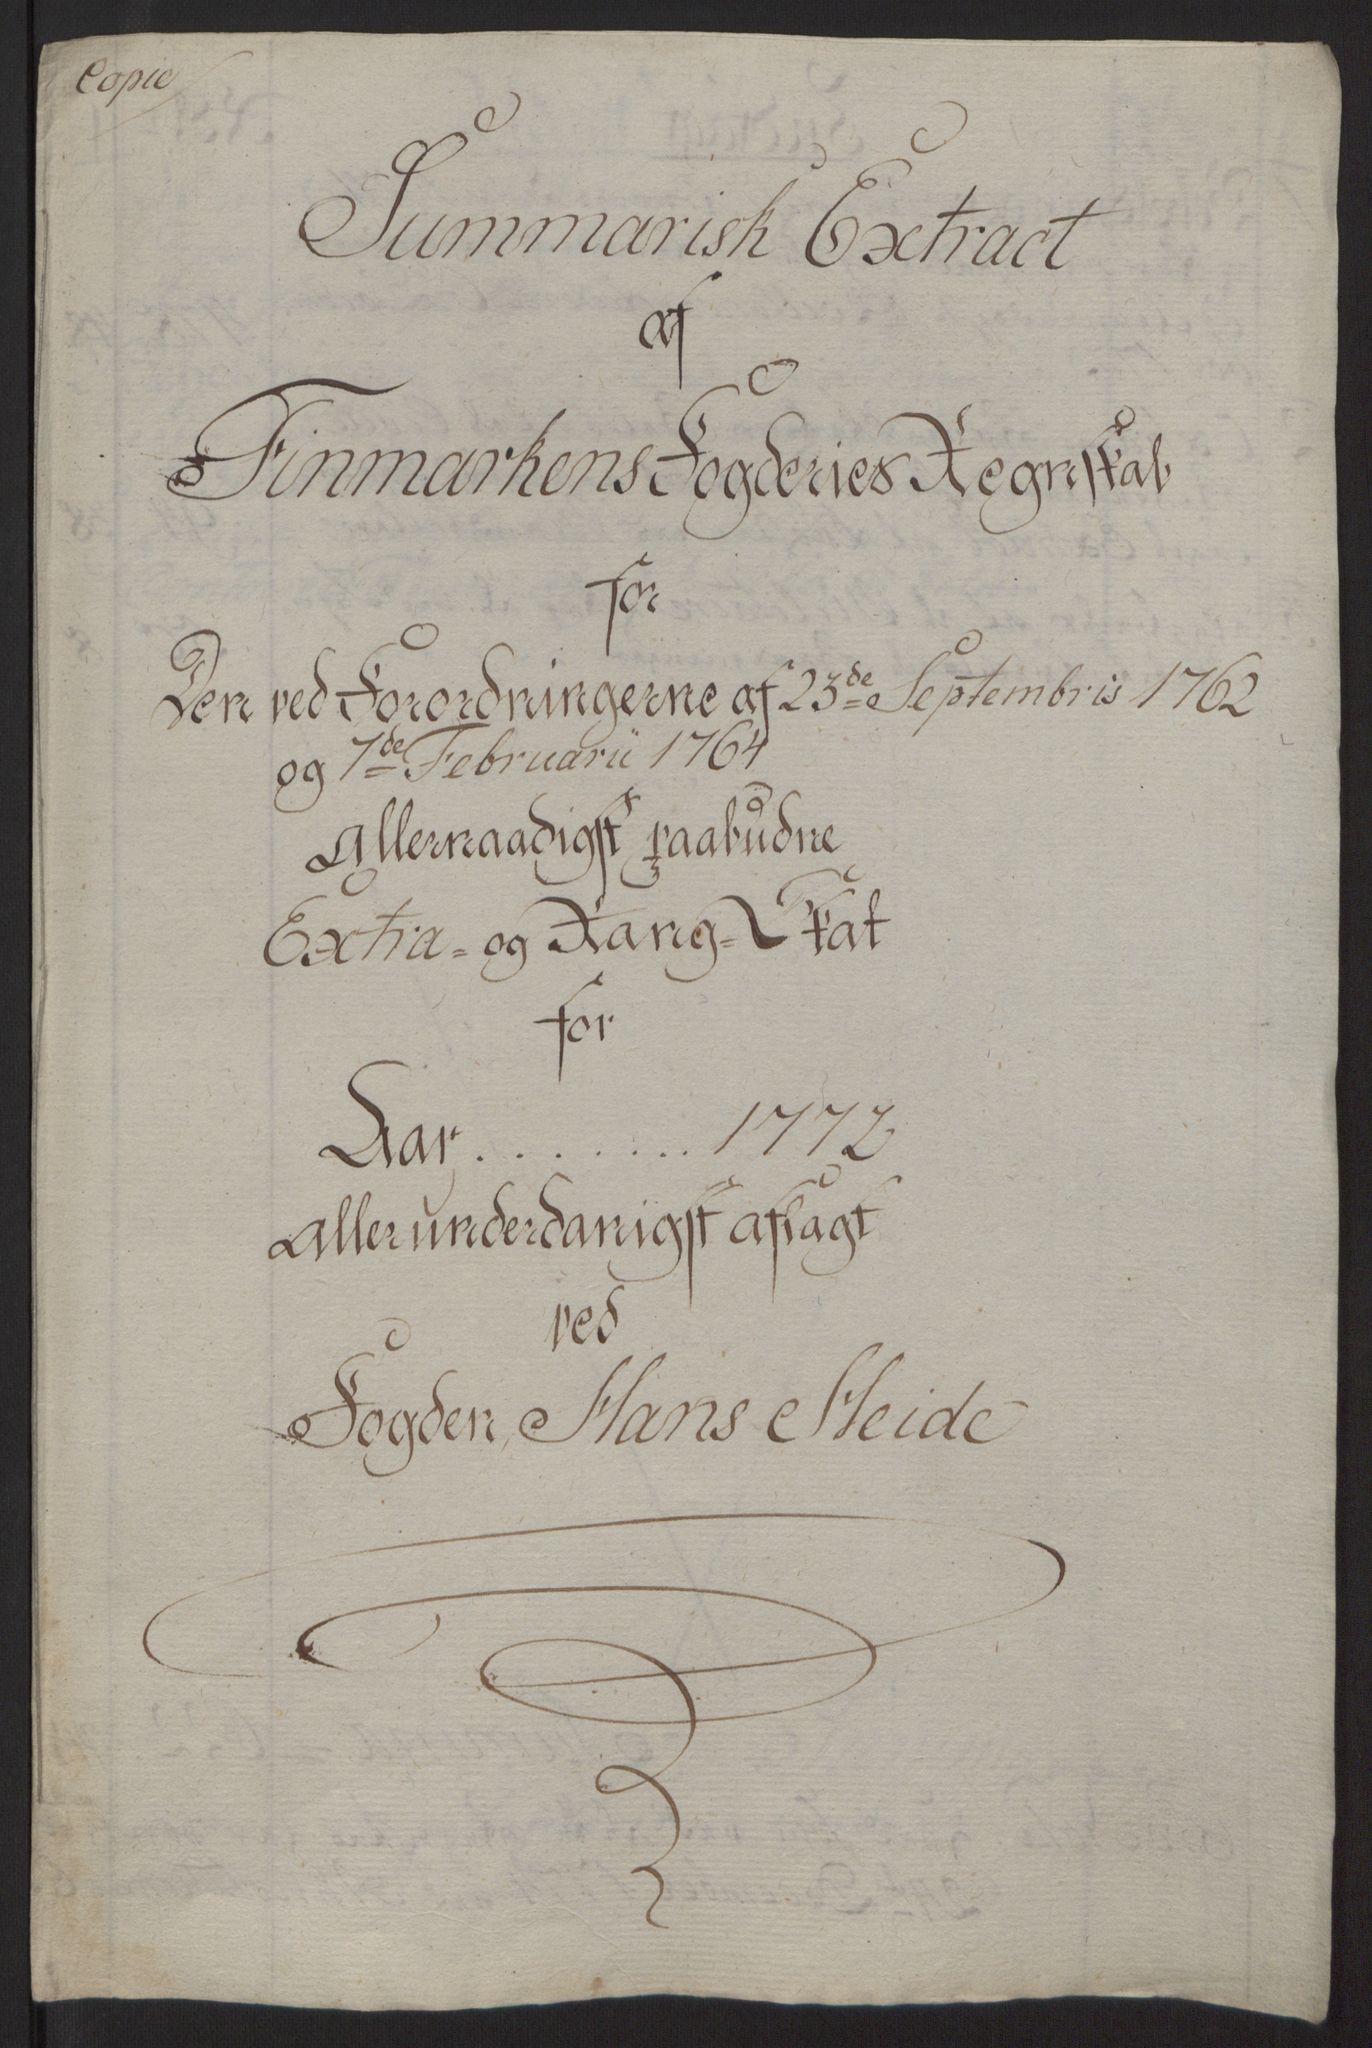 Copie
Summarisk Extract
af
Finmarkens Fogderies Regnskab
for
Den ved Forordningerne af 23de Septembris 1762
og 7de Februarii 1764
Allernaadigst paabudne
Extra- og Rang-Skat
for
Aar . . . . . . . 1772
Allerunderdanigst aflagt
ved
Fogden Hans Heide